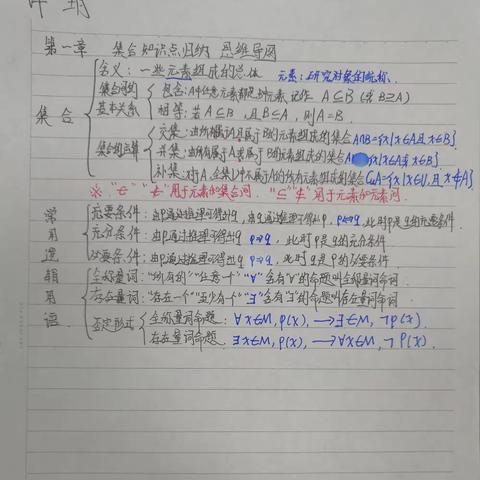 第一章 集合知识点归纳 思维导图
集合
含义：一些元素组成的总体 元素：研究对象的统称.
集合间的基本关系
包含：A中任意元素都是B的元素 记作 A⊆B (或 B⊇A)
相等：若A⊆B,且B⊆A,则A=B.
集合的运算
交集：由所有属于A且属于B的元素组成的集合A∩B={x|x∈A且x∈B}
并集：由所有属于A或属于B的元素组成的集合A {x|x∈A或x∈B}
补集：对于A,全集U中不属于A的所有元素组成的集合CuA={x|x∈U,且x∉A}
用于元素的集合间. "⊆" 用于元素和元素间.
常用逻辑用语
充要条件：由p通过推理可得出q,由q通过推理可得出p, p⇔q,此时p是q的充要条件.
充分条件：由p通过推理可得出q p⇒q, 此时p是q的充分条件
必要条件：由p通过推理可得出q p⇒q, 此时q是p的必要条件
全称量词："所有的""任意一个""∀"含有"∀"的命题叫全称量词命词.
存在量词："存在一个""至少有一个""∃"含有"∃"的命题叫存在量词命词
否定形式
全称量词命题：∀x∈M, p(x), →∃∈M, ¬p(x).
存在量词命题. ∃x∈M, p(x), →∀x∈M, ¬p(x).